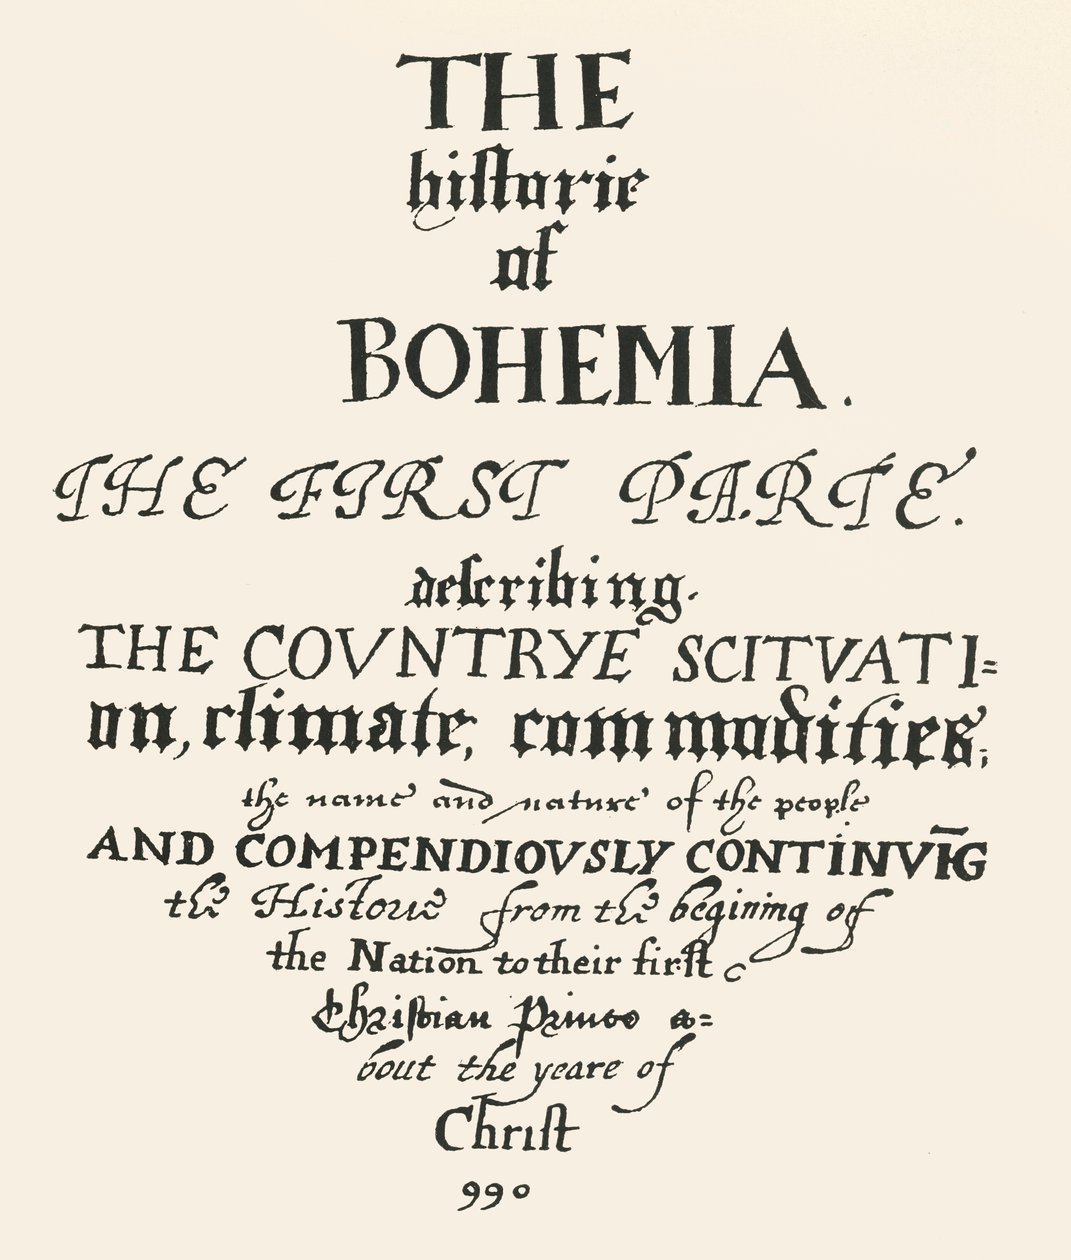 THE
hiſtorie
of
BOHEMIA.
THE FIRST PARTE.
deſcribing.
THE COVNTRYE SCITVATI=
on, climate, commodities;
the name and nature of the people
AND COMPENDIOVSLY CONTINVĪG
the Historie from the begining of
the Nation to their firſt
Chriſtian Prince a=
bout the yeare of
Chriſt
990